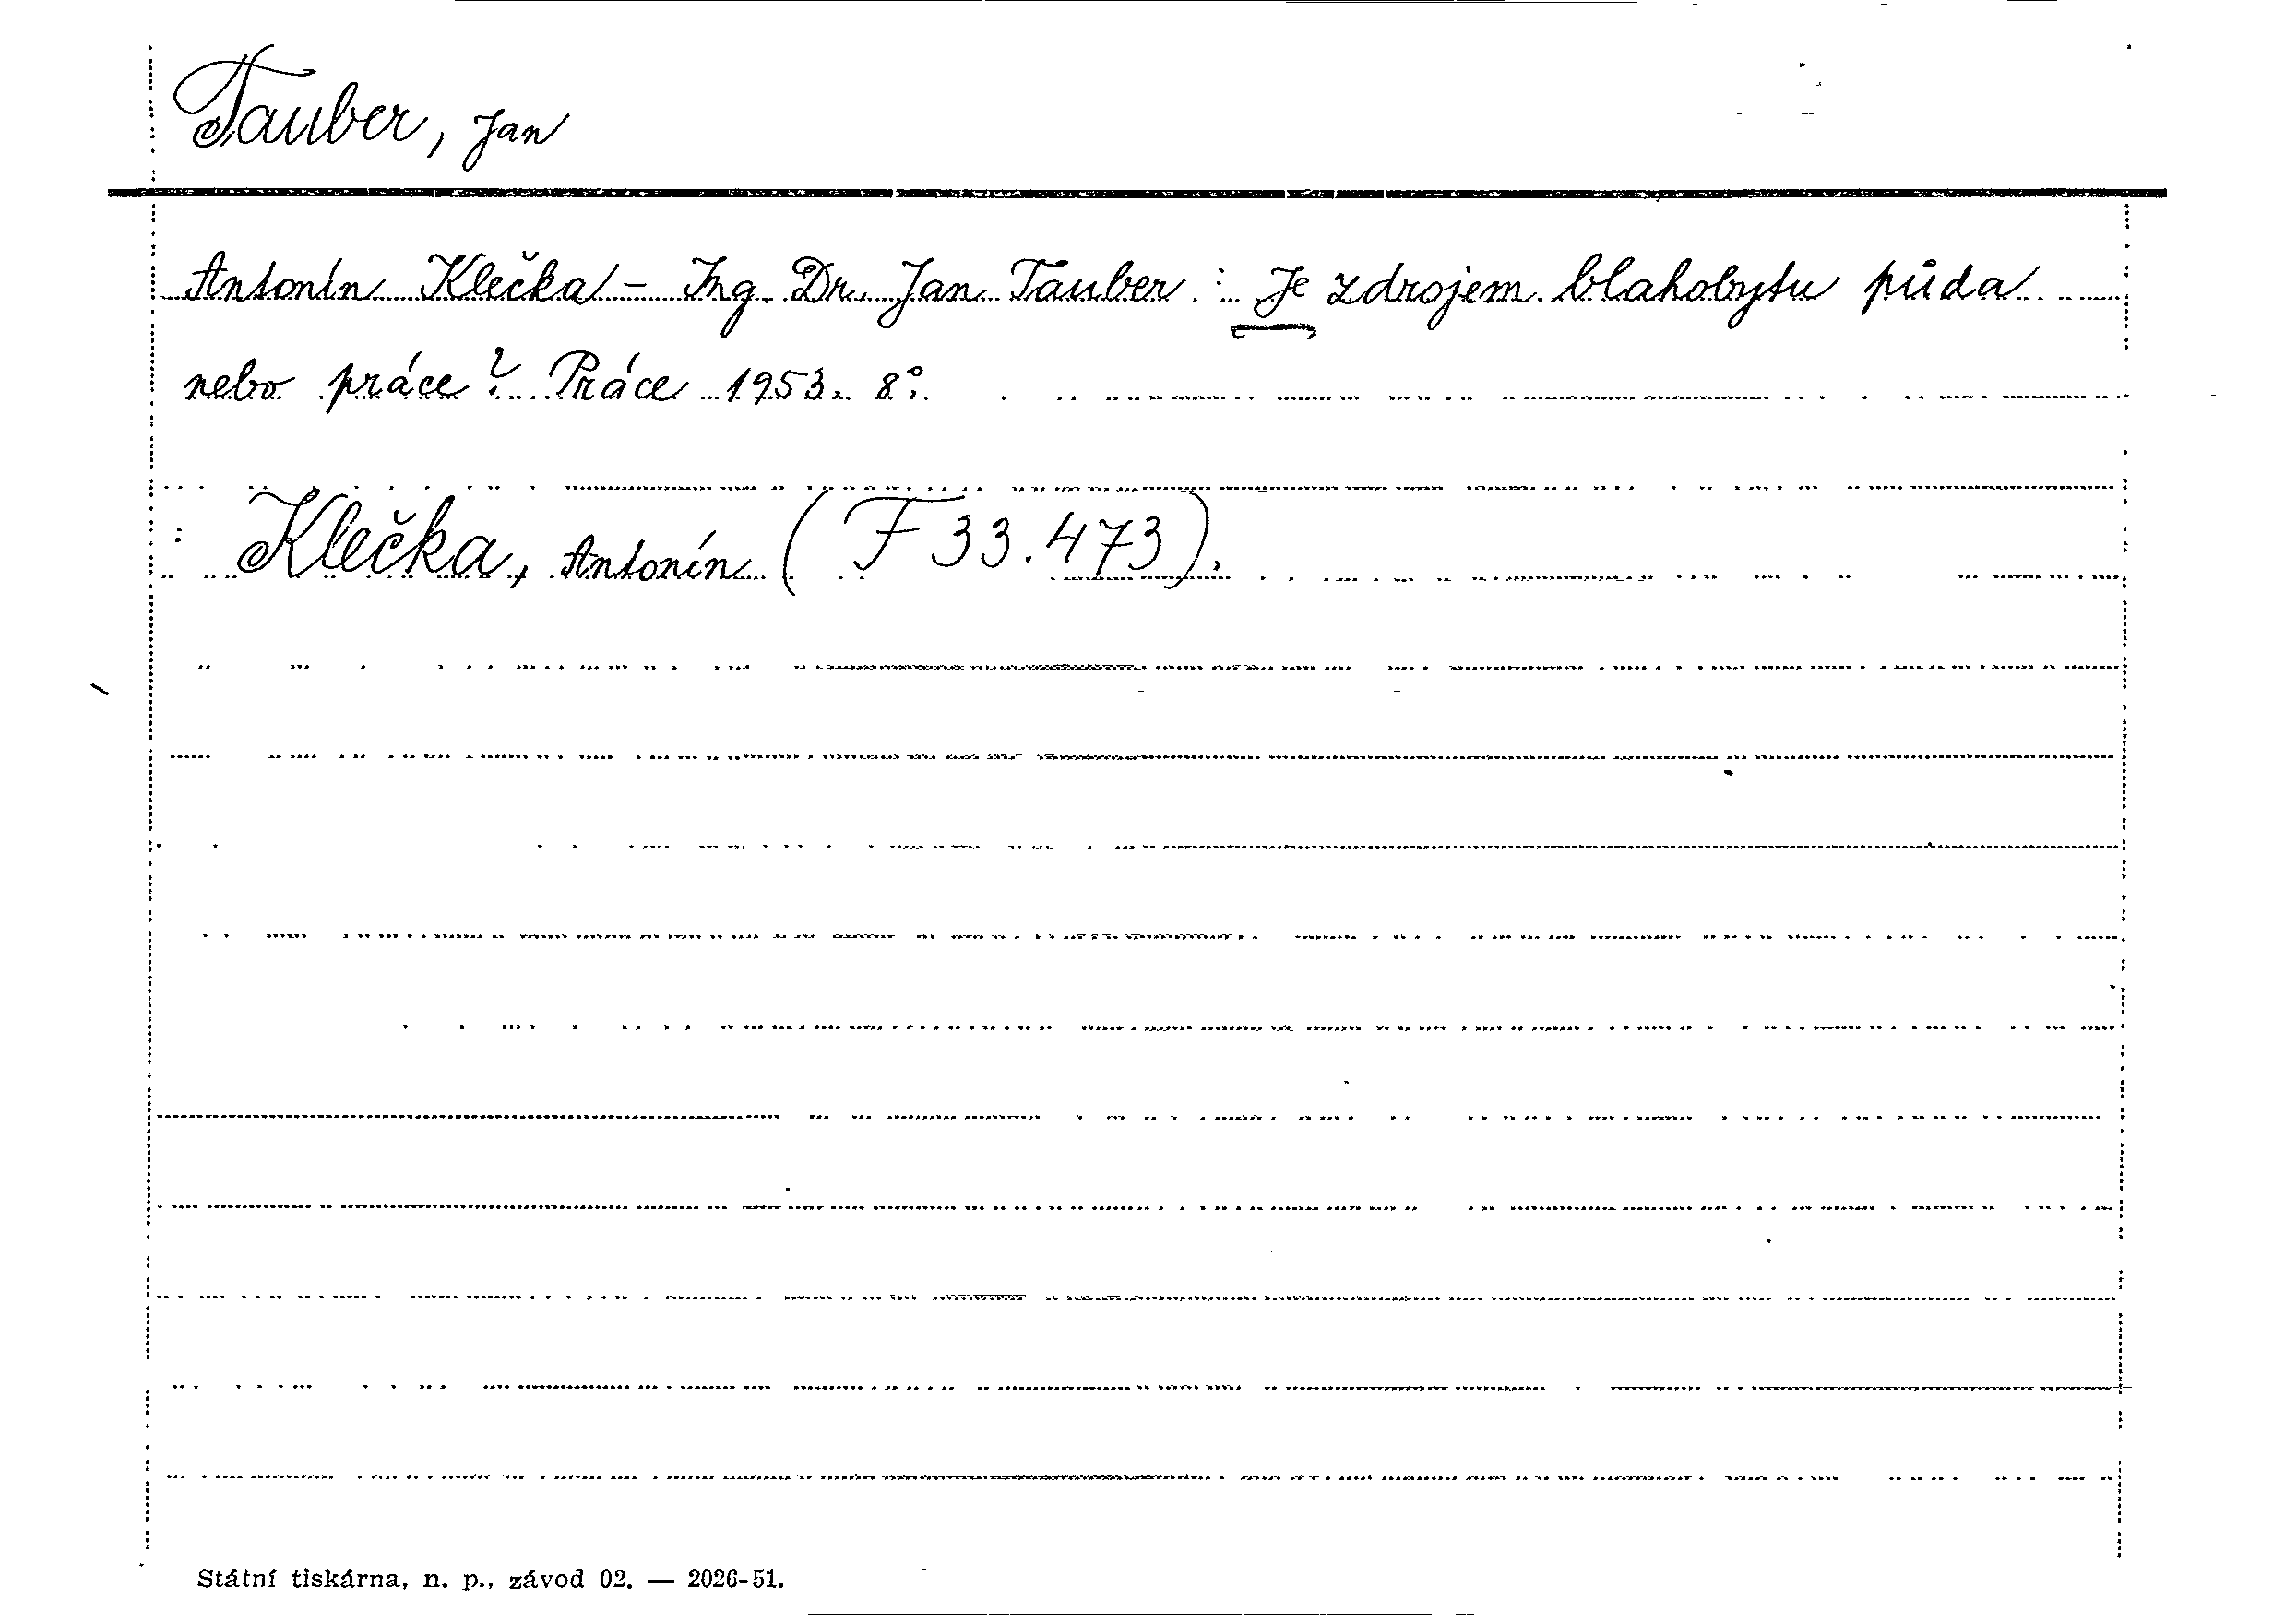 Tauber, Jan
Antonín Klečka - Ing. Dr. Jan Tauber : Je zdrojem blahobytu půda
nebo práce? Práce 1953. 8°.
: Klečka, Antonín (F 33.473).
Státní tiskárna, n. p., závod 02. — 2026-51.